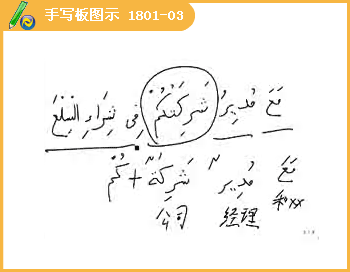 手写板图示 1801-03
مَعَ مُدِيرُ شَرِكَتُكُمْ فِي شِرَاءِ السِّلَعَ
مَعَ مُدِيرٌ شَرِكَةٌ + كُمْ
公司 经理 和xx